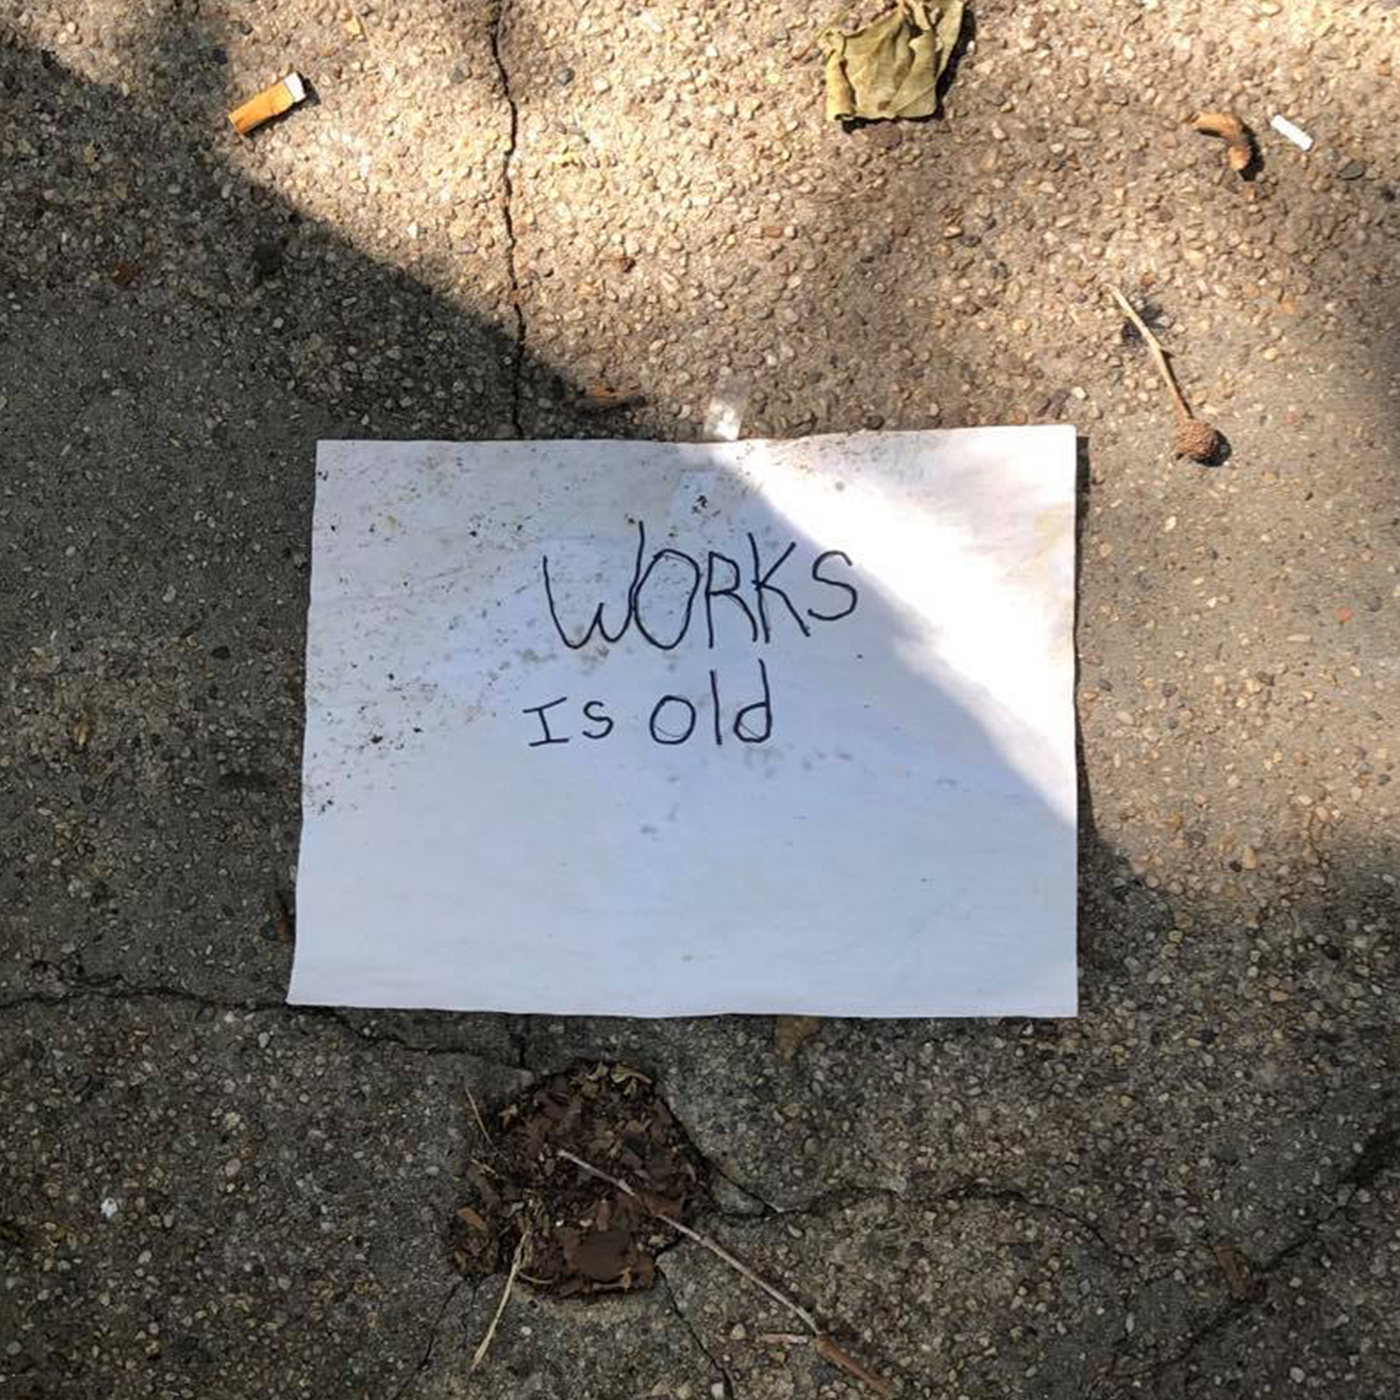 WORKS
Is old